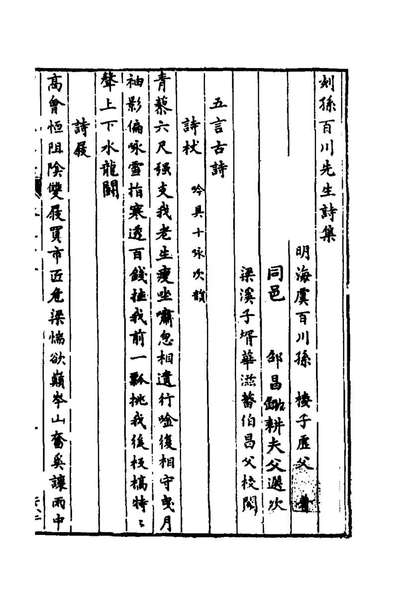 刻孫百川先生詩集
明海虞百川孫 樓子虛父 著
同邑 邵昌鉏耕夫父選次
梁溪子壻華滋蕃伯昌父校閱
五言古詩
詩杖 吟具十咏次韻
青藜六尺强支我老生瘦㘴嘯忽相遺行唫復相守曵月
袖影偏咏雪指寒透百錢挂我前一瓢挑我後枝槁特〻
聲上下水龍鬭
詩屐
高會恒阻陰雙屐買市近危梁惴欲巔岑山奮奚讓雨中